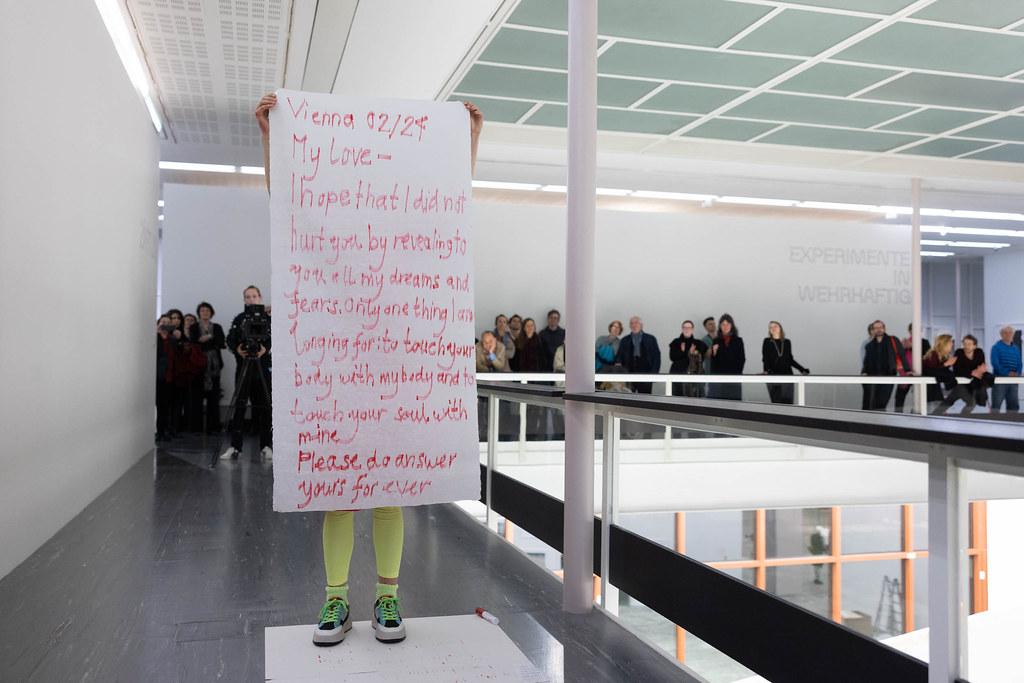 Vienna 02/24
My Love –
I hope that I did not
hurt you by revealing to
you all my dreams and
fears. Only one thing I am
longing for: to touch your
body with my body and to
touch your soul with
mine
Please do answer
yours for ever
EXPERIMENTE
IN
WEHRHAFTIG